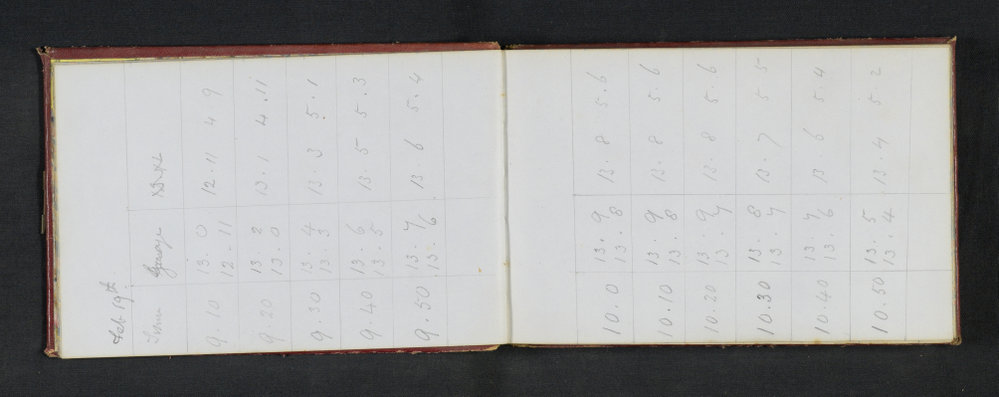 Feb 19th
Time
9.10 13.0 12.11 4.9
12.11
9.20 13.2 13.1 4.11
13.0
9.30 13.4 13.3 5.1
13.3
9.40 13.6 13.5 5.3
13.5
9.50 13.7 13.6 5.4
13.6
10.0 13.9 13.8 5.6
13.8
10.10 13.9 13.8 5.6
13.8
10.20 13.9 13.8 5.6
13.7
10.30 13.8 13.7 5.5
13.7
10.40 13.7 13.6 5.4
13.6
10.50 13.5 13.4 5.2
13.4